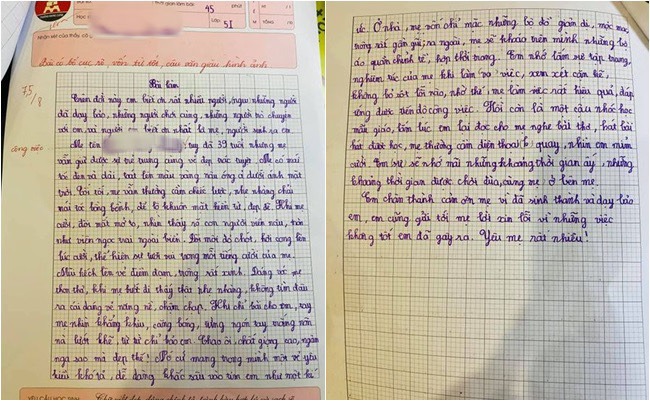 45
phút
Lớp
5.1
Bài có bố cục rõ, vốn từ tốt, câu văn giàu hình ảnh
Bài làm
Trên đời này em biết ơn rất nhiều người, ngưu những người
đã dạy bảo, những người chơi cùng, những người nói chuyện
với em, và người em biết ơn nhất là mẹ, người sinh ra em.
Mẹ tên tuy đã 39 tuổi nhưng mẹ
vẫn giữ được sự trẻ trung cùng vẻ đẹp tuyệt. Mẹ có mái
tóc đen và dài, toát lên màu vàng nâu óng ả dưới ánh mặt
trời. Với tôi, mẹ vẫn thường cầm chiếc lược, nhẹ nhàng chải
mái tóc bồng bềnh, để lộ khuôn mặt hiền từ, đẹp đẽ. Khi mẹ
cười, đôi mắt mở to, nhìn thấy rõ con người viền nâu, tròn
như viên ngọc trai ngoài biển. Đôi môi đỏ chót, hơi cong lên
lúc cười, thể hiện sự tươi vui trong mỗi tiếng cười của mẹ.
Mũi hếch lên vẻ điềm đạm, trông rất xinh. Dáng vóc mẹ
thon thả, khi mẹ bước đi thấy thật nhẹ nhàng, không tìm đâu
ra cái dáng vẻ nặng nề, chậm chạp. Khi chỉ bài cho em, tay
mẹ nhìn khẳng khiu, càng bóng, từng ngón tay trắng nõn
nà lướt khẽ, từ từ chỉ bảo em. Chao ôi, chất giọng cao, ngân
nga sao mà đẹp thế! Nó cứ mang trong mình một vẻ yêu
kiều khó tả, dễ dàng khắc sâu vào tim em như một kí
ức. Ở nhà, mẹ vẫn chỉ mặc những bộ đồ giản dị, mộc mạc
trông rất gần gũi; ra ngoài, mẹ sẽ khoác trên mình những bộ
áo quần chỉnh tề, hợp thời trang. Em nhớ lắm sự tập trung,
nghiêm túc của mẹ khi làm việc, xem xét cặn kẽ,
không bỏ sót lỗi nào, nhờ thế mẹ làm việc rất hiệu quả, đáp
ứng được tiến độ công việc. Hồi còn là một cậu nhóc học
mẫu giáo, lắm lúc em lại đọc cho mẹ nghe bài thơ, hát bài
hát được học, mẹ thường cầm điện thoại quay, nhìn em mỉm
cười. Em sẽ nhớ mãi những khoảng thời gian ấy, những
khoảng thời gian được chơi đùa, cùng mẹ ở bên mẹ.
Em chân thành cảm ơn mẹ vì đã sinh thành và dạy bảo
em, em cũng gửi tới mẹ lời xin lỗi vì những việc
không tốt em đã gây ra. Yêu mẹ rất nhiều!